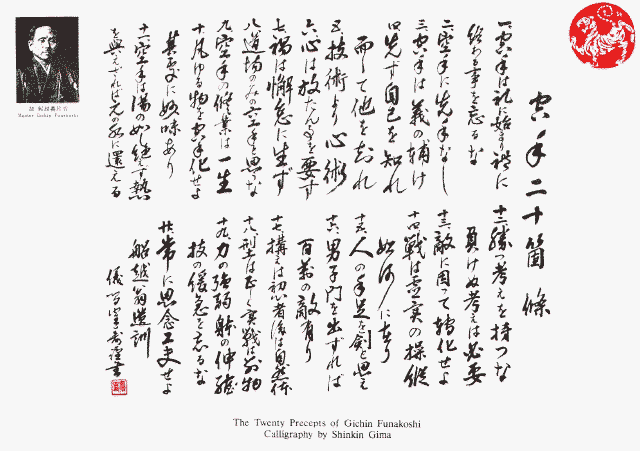 空手二十箇條
一空手は礼に始まり礼に
終わる事を忘るな
二空手に先手なし
三空手は義の輔け
四先ず自己を知れ
而して他を知れ
五技術より心術
六心は放たん事を要す
七禍は懈怠に生ず
八道場のみの空手と思うな
九空手の修業は一生
十凡ゆる物を空手化せよ
其処に妙味あり
十一空手は湯の如し絶えず熱
を与えざれば元の水に還える
十二勝つ考えを持つな
負けぬ考えは必要
十三敵に因って転化せよ
十四戦は虚実の操縦
如何に在り
十五人の手足を剣と思え
十六男子門を出ずれば
百万の敵有り
十七構えは初心者後は自然体
十八型は正しく実戦は別物
十九力の強弱躰の伸縮
技の緩急を忘るな
廿常に思念工夫せよ
船越翁遺訓
Master Gichin Funakoshi
The Twenty Precepts of Gichin Funakoshi
Calligraphy by Shinkin Gima